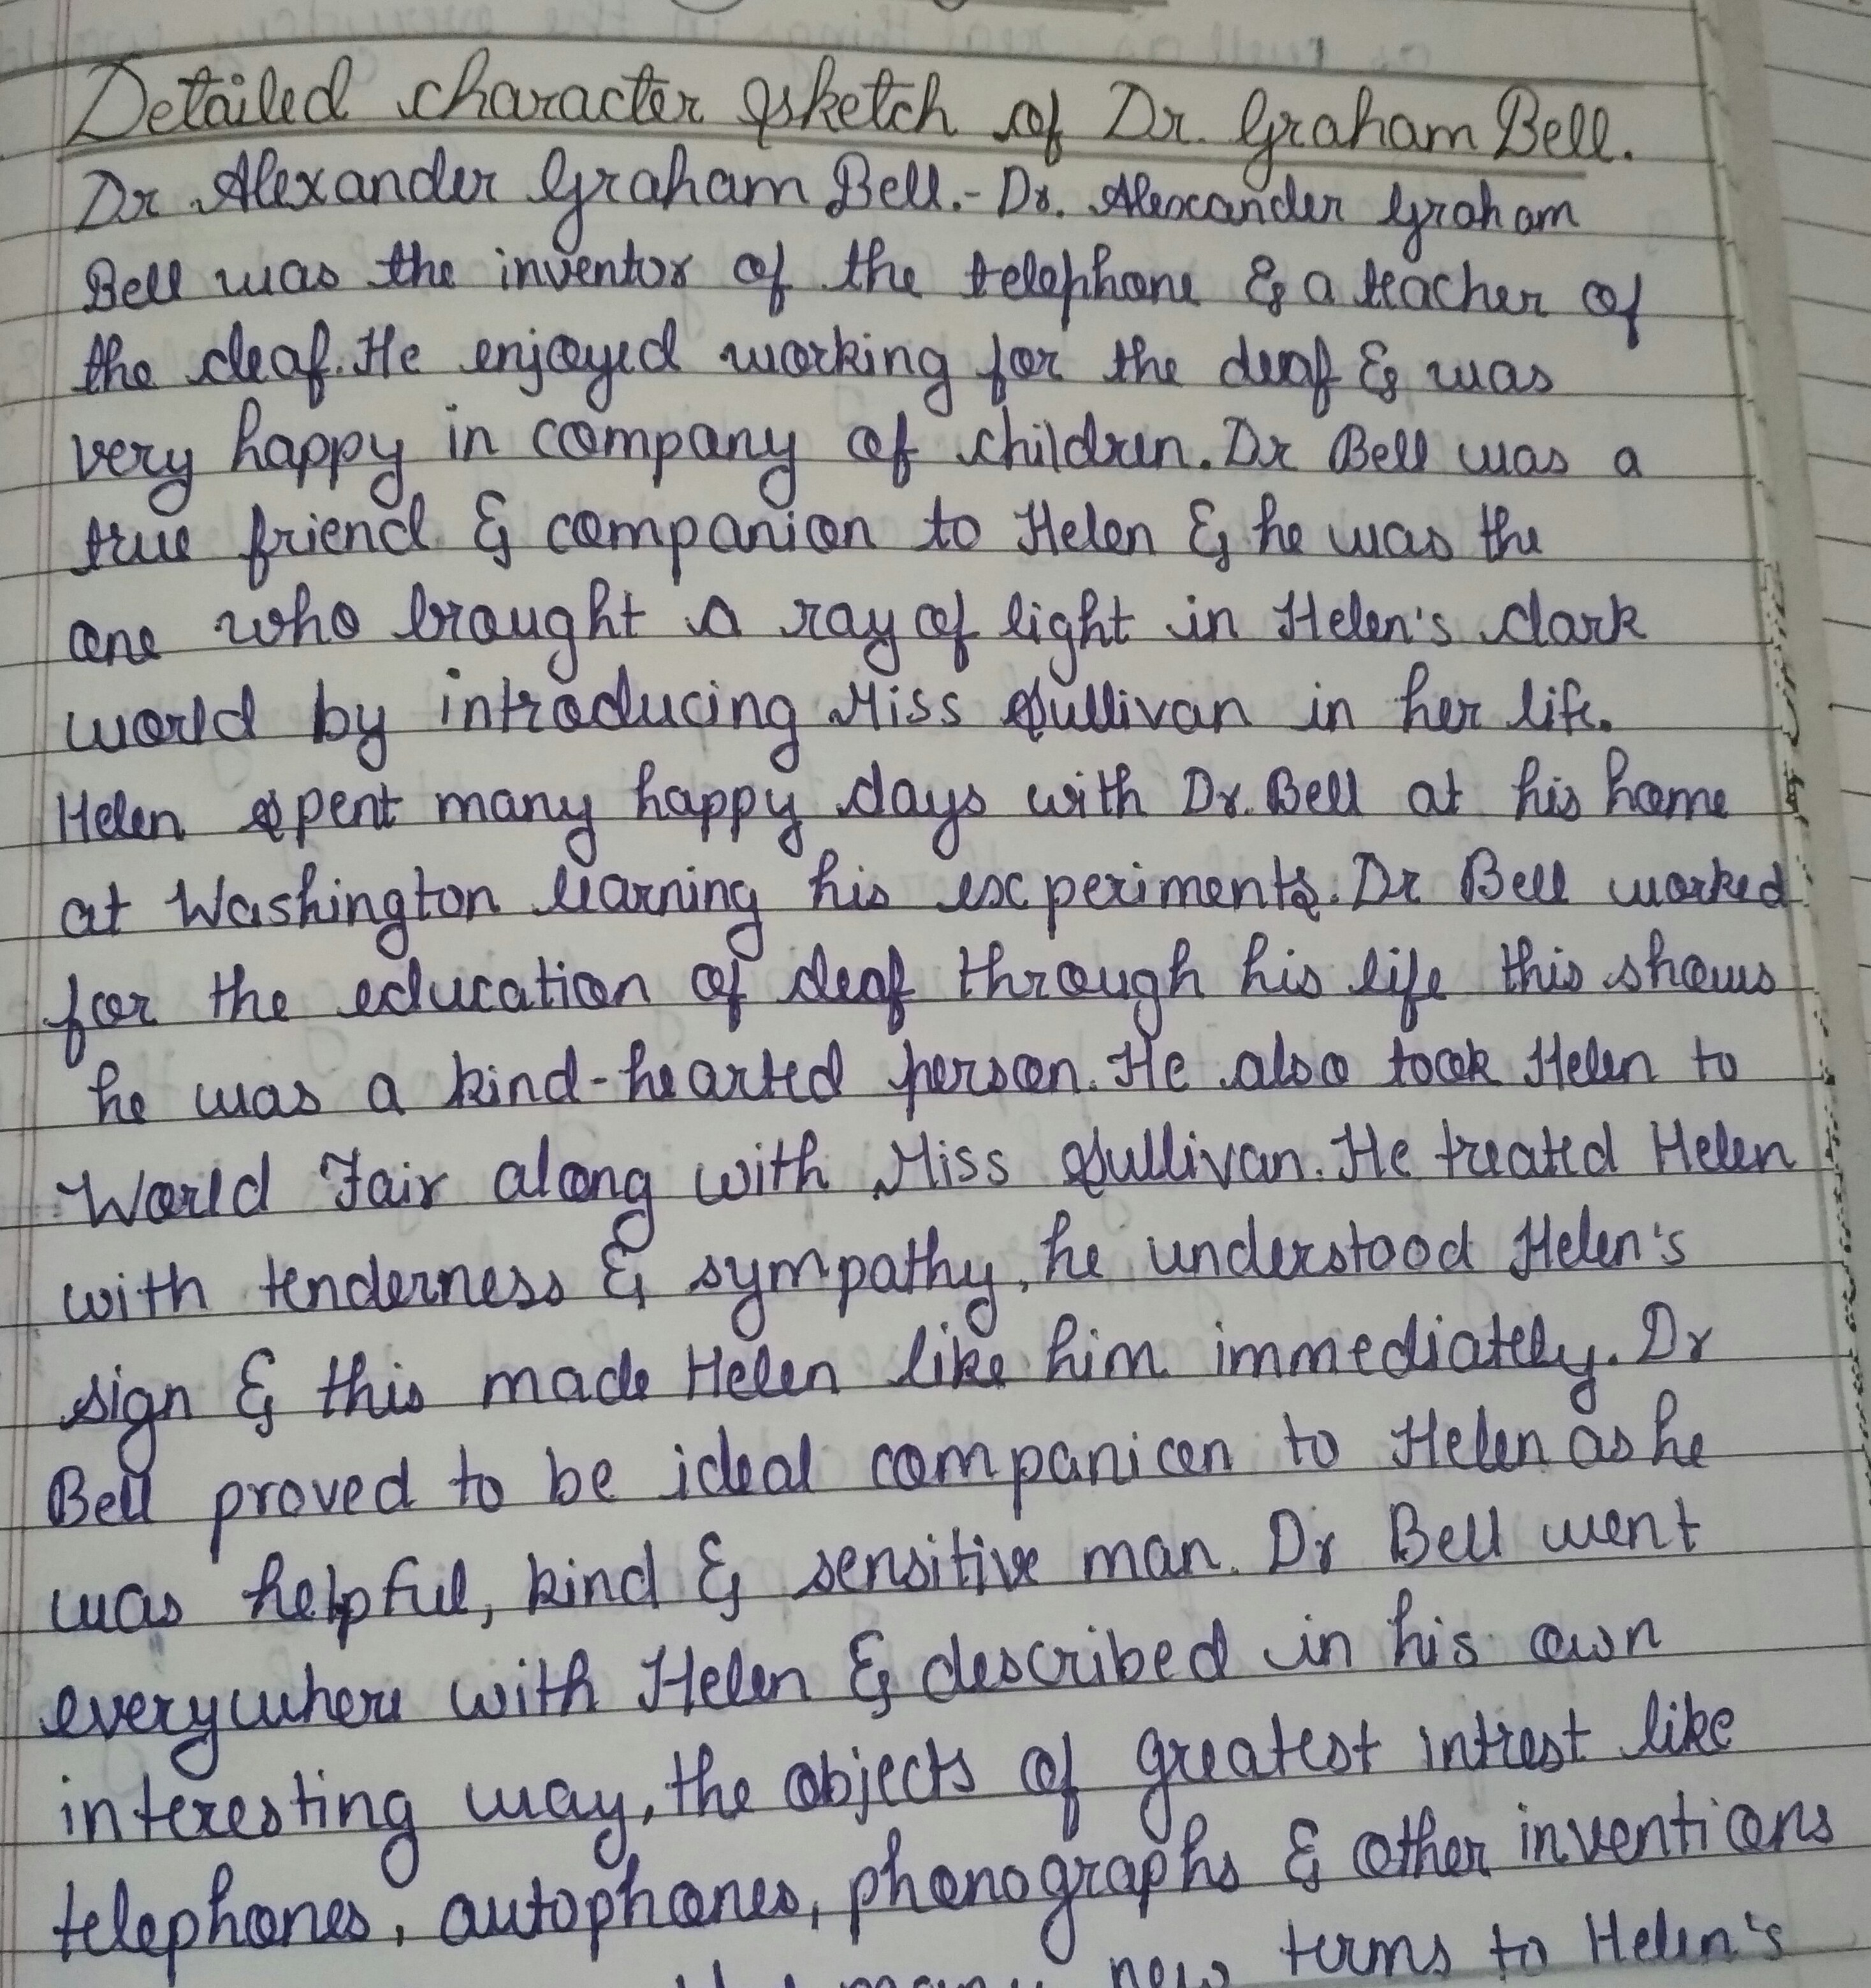 Detailed character sketch of Dr. Graham Bell.
Dr Alexander Graham Bell.- Dr. Alexander Graham
Bell was the inventor of the telephone & a teacher of
the deaf. He enjoyed working for the deaf & was
very happy in company of children. Dr Bell was a
true friend & companion to Helen & he was the
one who brought a ray of light in Helen's dark
world by introducing Miss Sullivan in her life.
Helen spent many happy days with Dr. Bell at his home
at Washington learning his experiments. Dr Bell worked
for the education of deaf through his life this shows
he was a kind-hearted person. He also took Helen to
World Fair along with Miss Sullivan. He treated Helen
with tenderness & sympathy, he understood Helen's
sign & this made Helen like him immediately. Dr
Bell proved to be ideal companion to Helen as he
was helpful, kind & sensitive man. Dr Bell went
everywhere with Helen & described in his own
interesting way, the objects of greatest intrest like
telephones, autophones, phonographs & other inventions
many new terms to Helen's